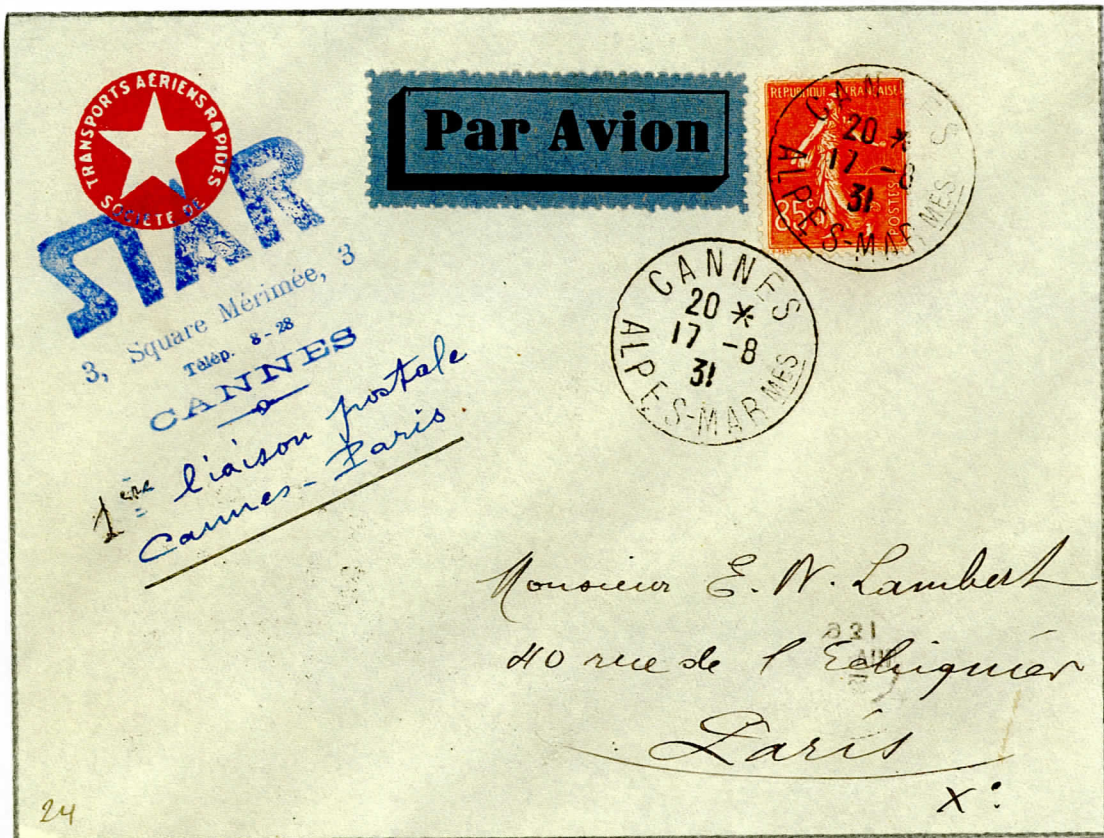 SOCIÉTÉ DE TRANSPORTS AÉRIENS RAPIDES
STAR
3, Square Mérimée, 3
Télép. 8-28
CANNES
1ère liaison postale
Cannes-Paris
Par Avion
REPUBLIQUE FRANÇAISE
85c
POSTES
CANNES
20 *
17 -8
31
ALPES-MARMES
CANNES
20 *
17 -8
31
ALPES-MARMES
Monsieur E. N. Lambert
40 rue de l'Echiquier
Paris
Xe
24